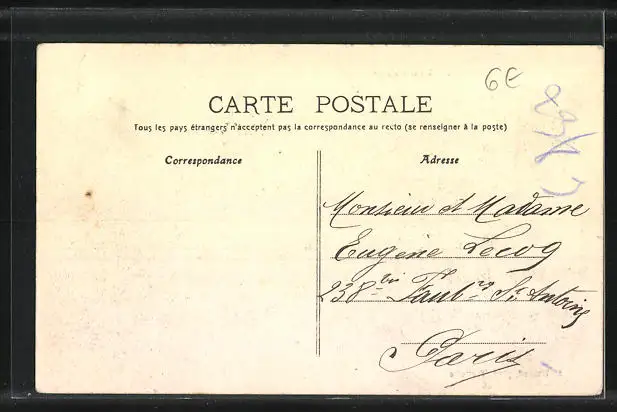 6E
CARTE POSTALE
Tous les pays étrangers n'acceptent pas la correspondance au recto (se renseigner à la poste)
Correspondance
Adresse
Monsieur et Madame
Eugène Lecoq
238 bis Faubg St. Antoine
Paris